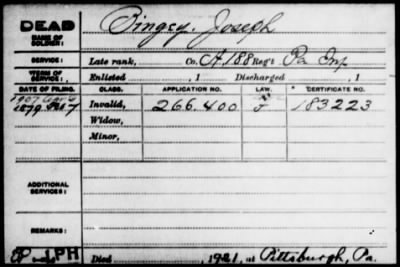 DEAD
NAME OF SOLDIER: Pingsy. Joseph
SERVICE: Late rank, Co. A, 188 Reg't Pa Inf
TERM OF SERVICE: Enlisted , 1 Discharged , 1
DATE OF FILING. CLASS. APPLICATION NO. LAW. CERTIFICATE NO.
1907
1879 Invalid, 266.400 183223
Widow,
Minor,
ADDITIONAL SERVICES:
REMARKS:
IPH
Died , 1921, at Pittsburgh, Pa.